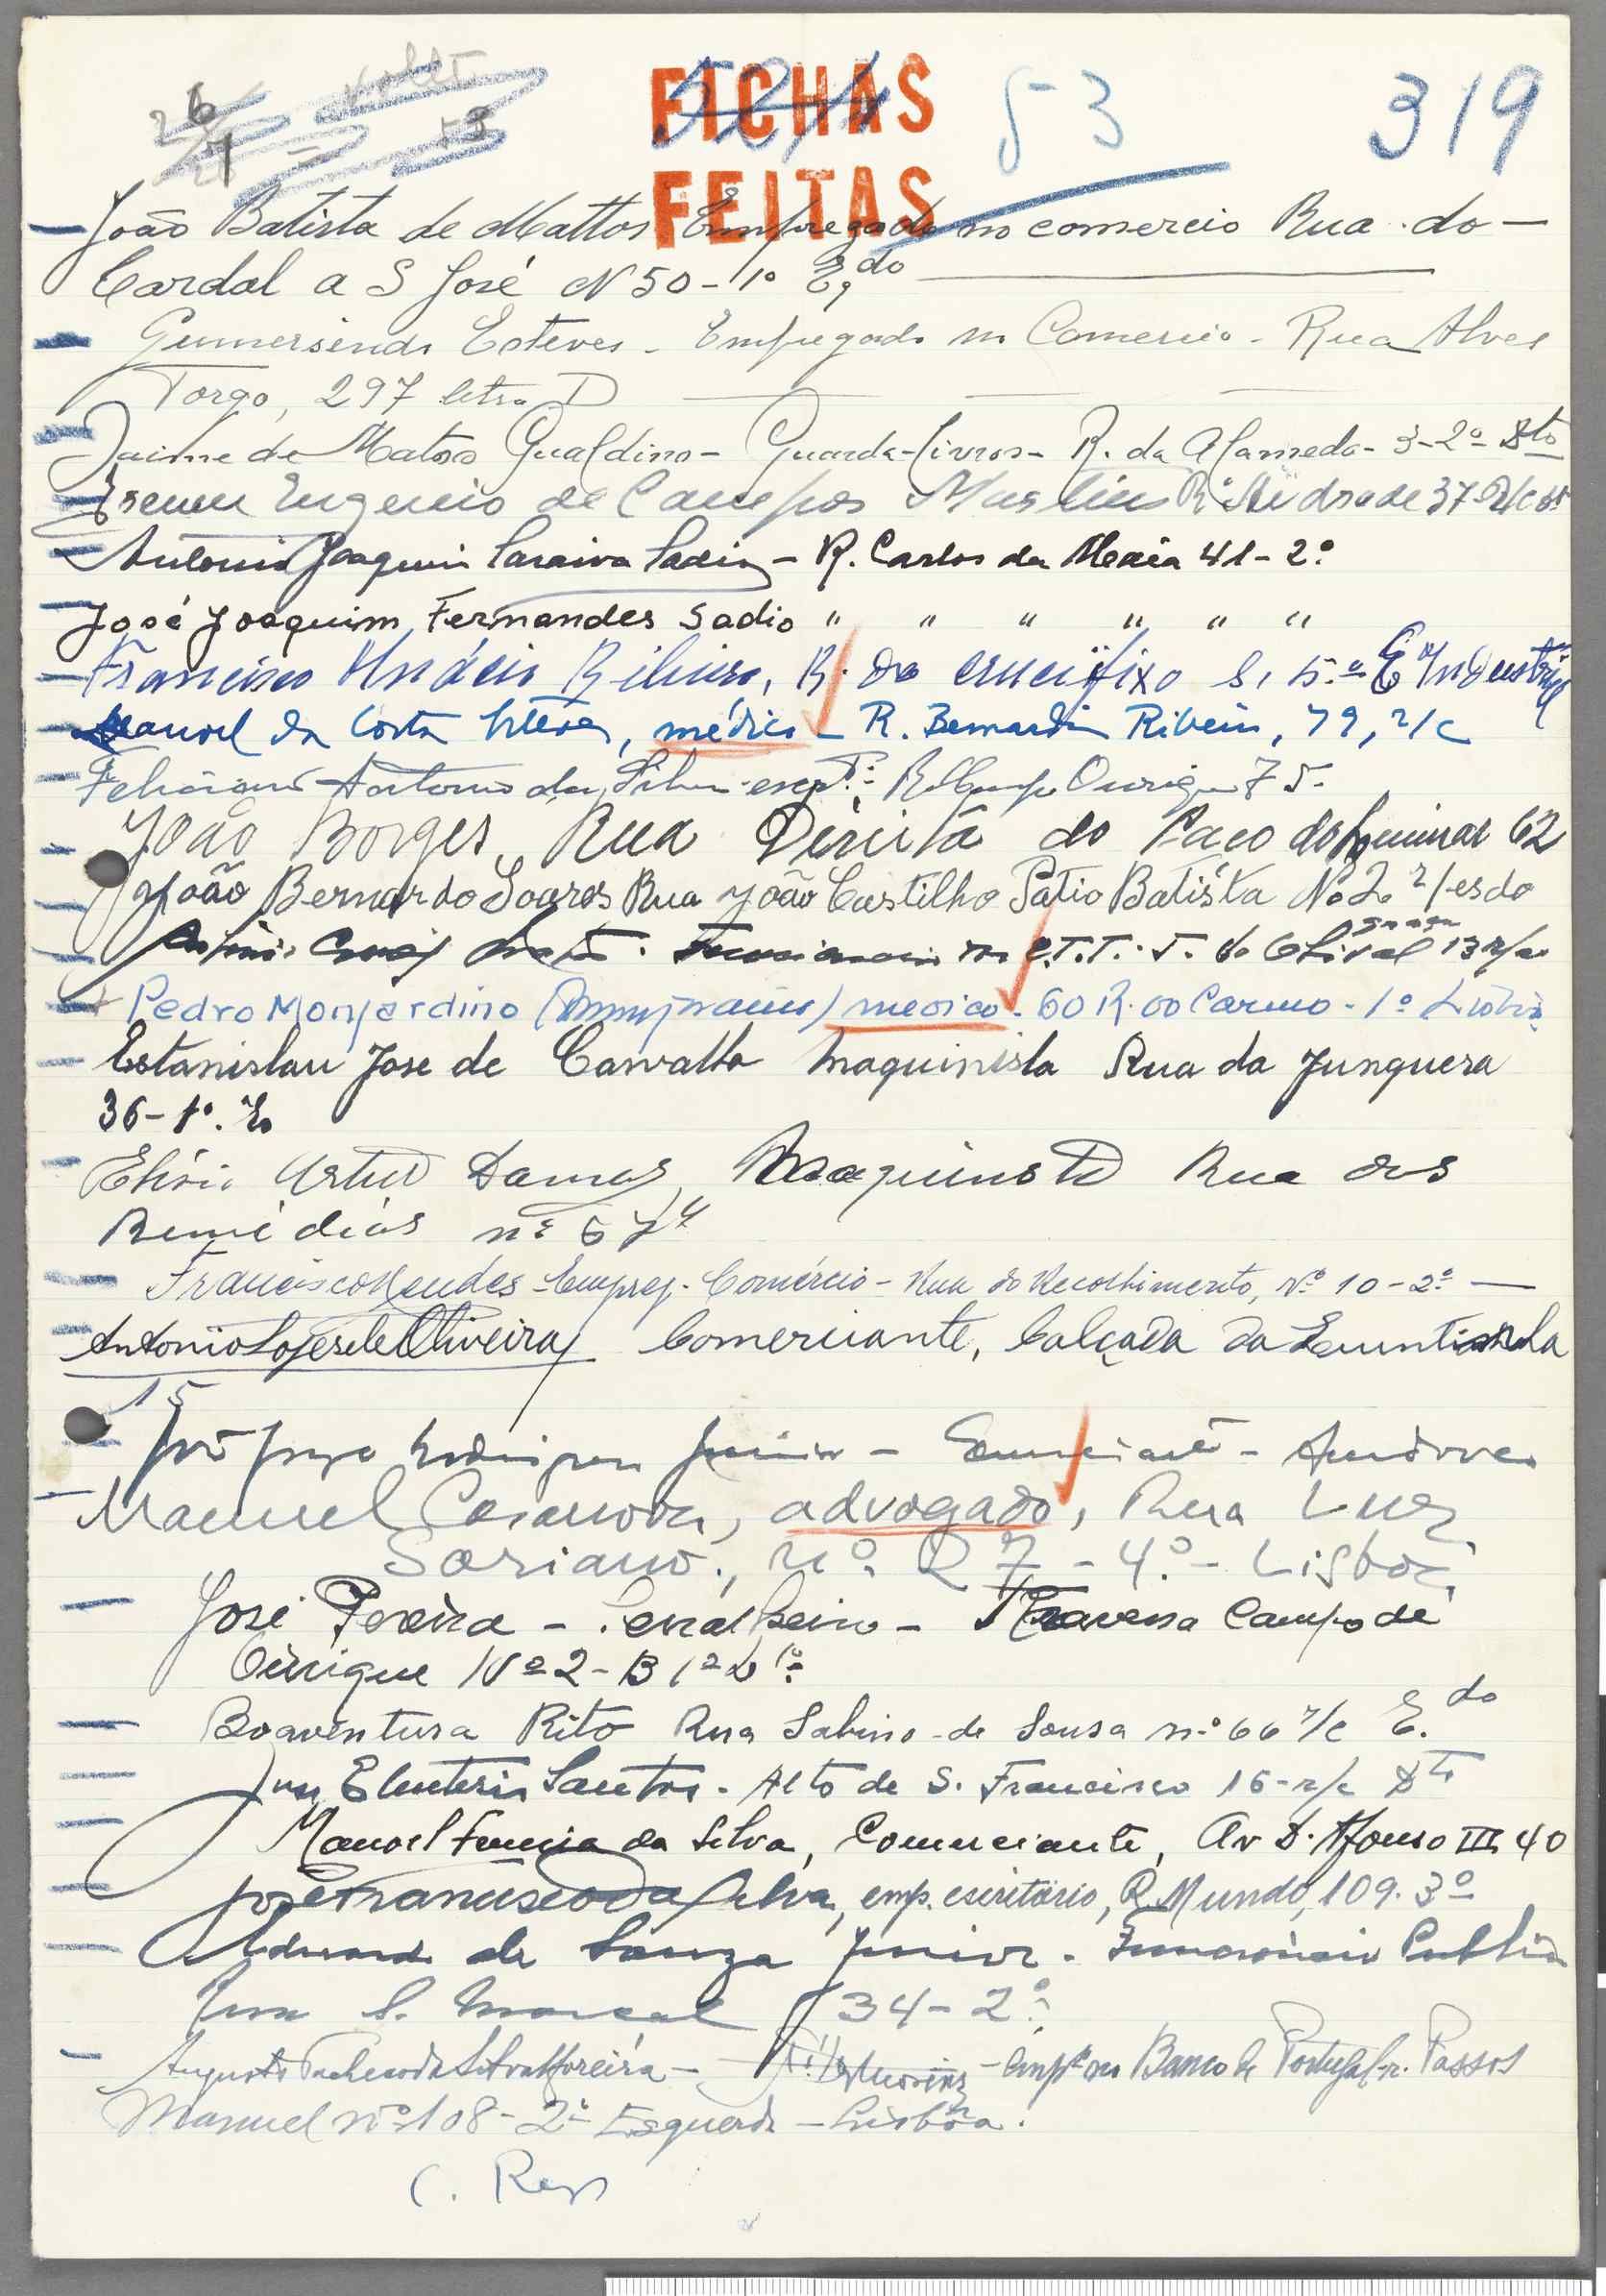 53
319
FICHAS
FEITAS
João Batista de Mattos Empregado no comercio Rua do
Cardal a S José N 50-1º Eqdo
Gumersindo Esteves - Empregado no Comercio - Rua Alves
Torgo, 297 letra D
Jaime de Matos Gualdino - Guarda-livros - R. da Alameda - 3-2º Dto
Eugenio de Campos Martins R. Andrade 37-R/c
Antonio Joaquim Saraiva Sadio - R. Carlos da Maia 41-2º
José Joaquim Fernandes Sadio " " " " " "
Francisco Ribeiro, R. do crucifixo 5.º E Industrial
Manoel da Costa Esteves, médico - R. Bernardim Ribeiro, 79, r/c
Feliciano Antonio da Silva R. Campo Ourique 75
João Borges, Rua Direita do Paço do Lumiar 62
João Bernardo Soares Rua João Castilho Patio Batista No 2 r/esdo
C.T.T. T. do Olival 13 r/c
Pedro Monjardino medico - 60 R. do Carmo - 1º Lisboa
Estanislau Jose de Carvalho Maquinista Rua da Junquera
36-1º. E
Elisio Artur Damas, Maquinista Rua dos
Remédios nº 67
Francisco Mendes - Empreg. Comércio - Rua do Recolhimento, Nº 10-2º
Antonio Lopes de Oliveira Comerciante, Calçada da
15
Rodrigues Junior - Comerciante -
Manuel Casanova, advogado, Rua Luz
Soriano, nº 27 - 4º - Lisboa
José Pereira - Serralheiro - Travessa Campo de
Ourique Nº 2-B 1º D
Boaventura Rito Rua Sabino de Sousa nº 66 r/c E.do
Eleuterio Santos - Alto de S. Francisco 16-r/c Dto
Manoel Ferreira da Silva, Comerciante, Av D. Afonso III 40
José Francisco da Silva, emp. escritório, R. Mundo, 109-3º
Eduardo de Souza Junior - Funcionario Publico
Rua S. Marçal 34-2º
Augusto Pacheco da Silva Moreira - - Empº no Banco de Portugal - r. Passos
Manuel nº 108-2º Esquerdo - Lisboa.